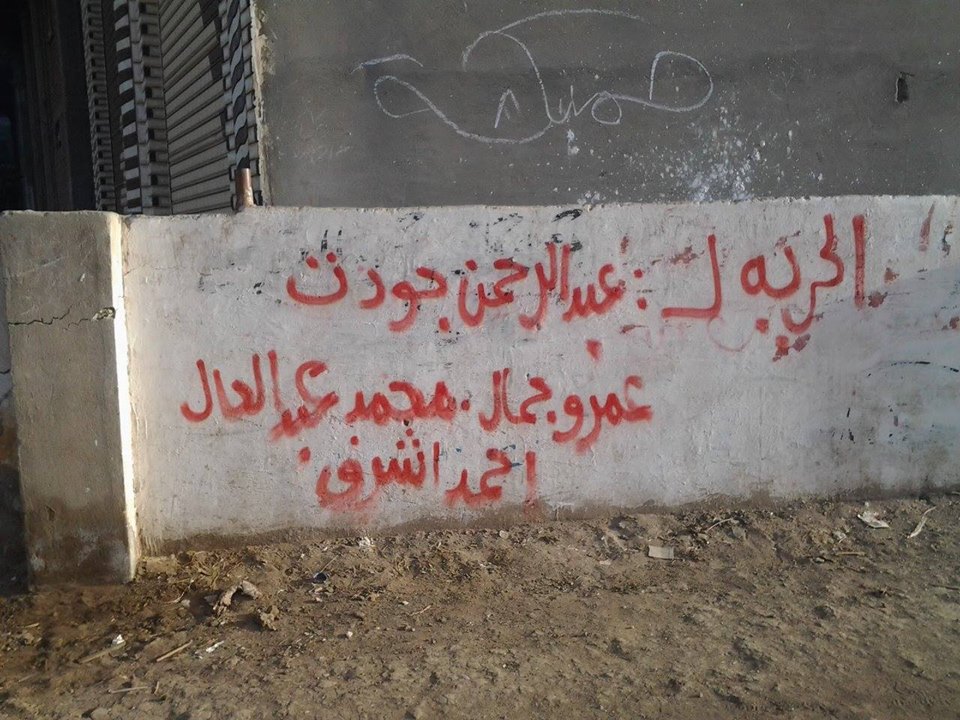 الحريه ل : عبد الرحمن جودت
عمرو جمال . محمد عبد العال
احمد اشرف